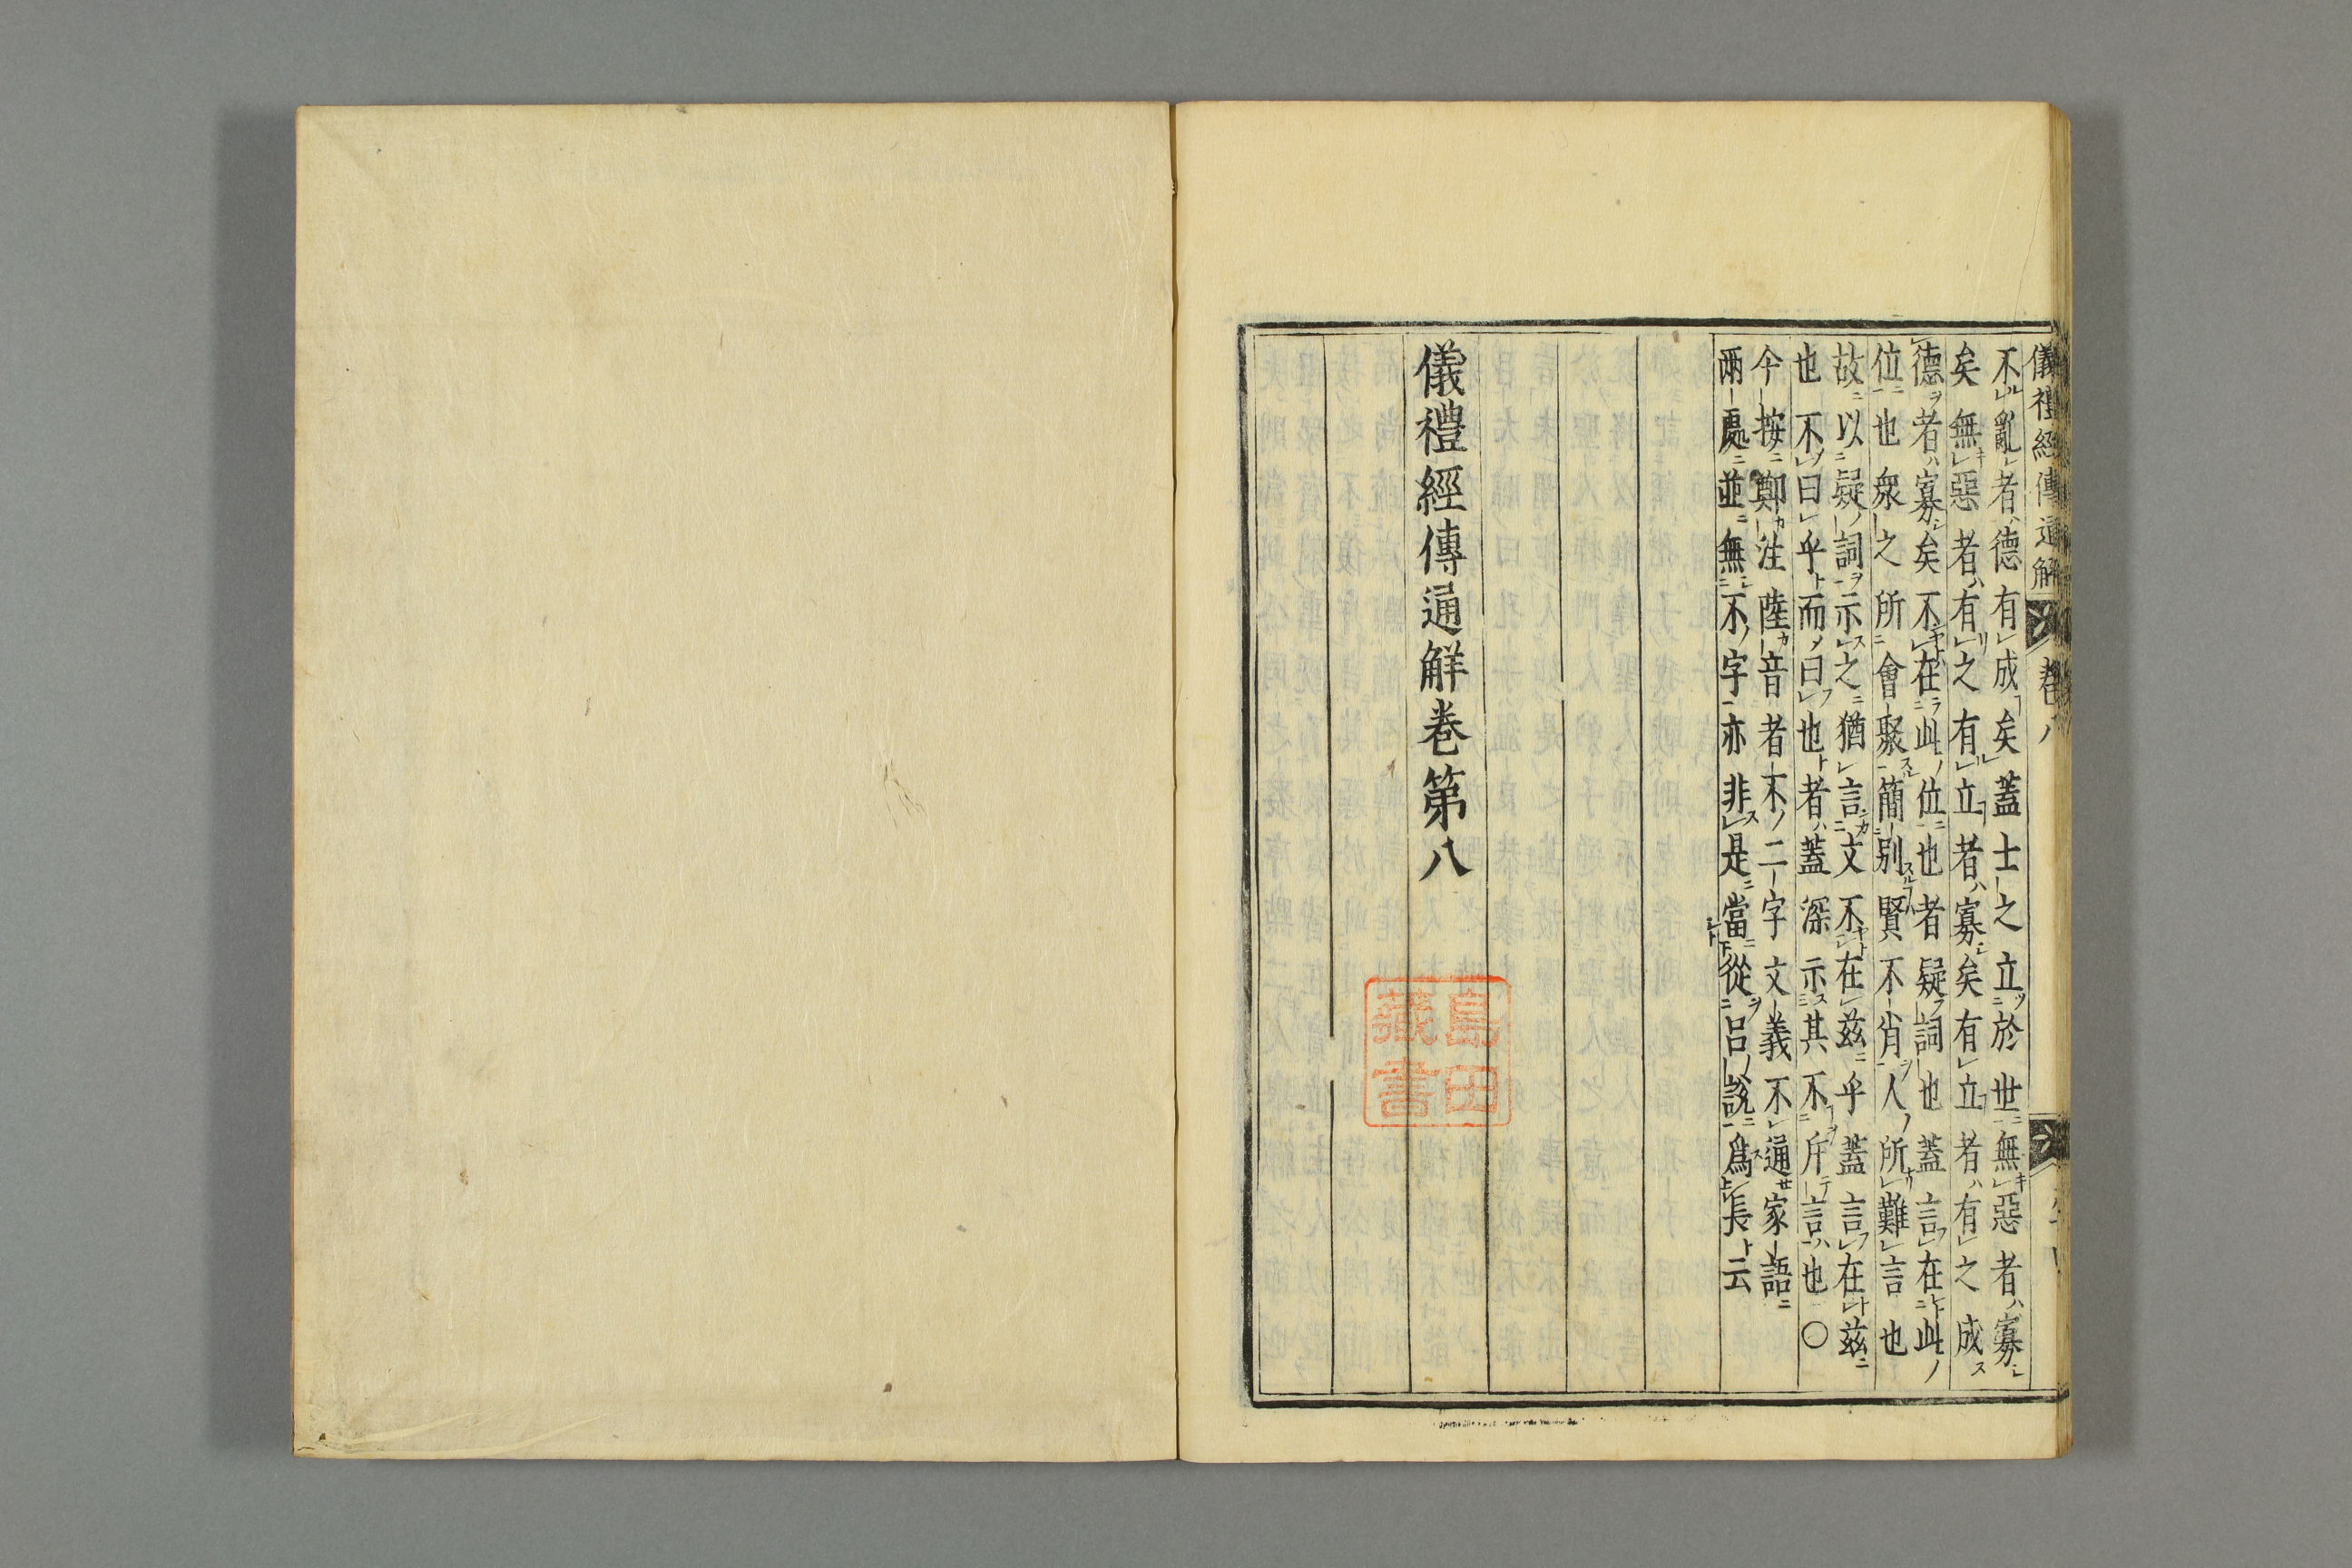 儀禮經傳通解 卷八
不亂者德有成矣蓋士之立於世無惡者寡
矣無惡者有之有立者寡矣有立者有之成
德者寡矣不在此位也者疑詞也蓋言在此
位也衆之所會聚簡別賢不肖人所難言也
故以疑詞示之猶言文不在茲乎蓋言在茲
也不曰乎而曰也者蓋深示其不斥言也〇
今按鄭注陸音者不二字文義不通家語
兩處並無不字亦非是當從呂說爲長云
儀禮經傳通解卷第八
島田
藏書